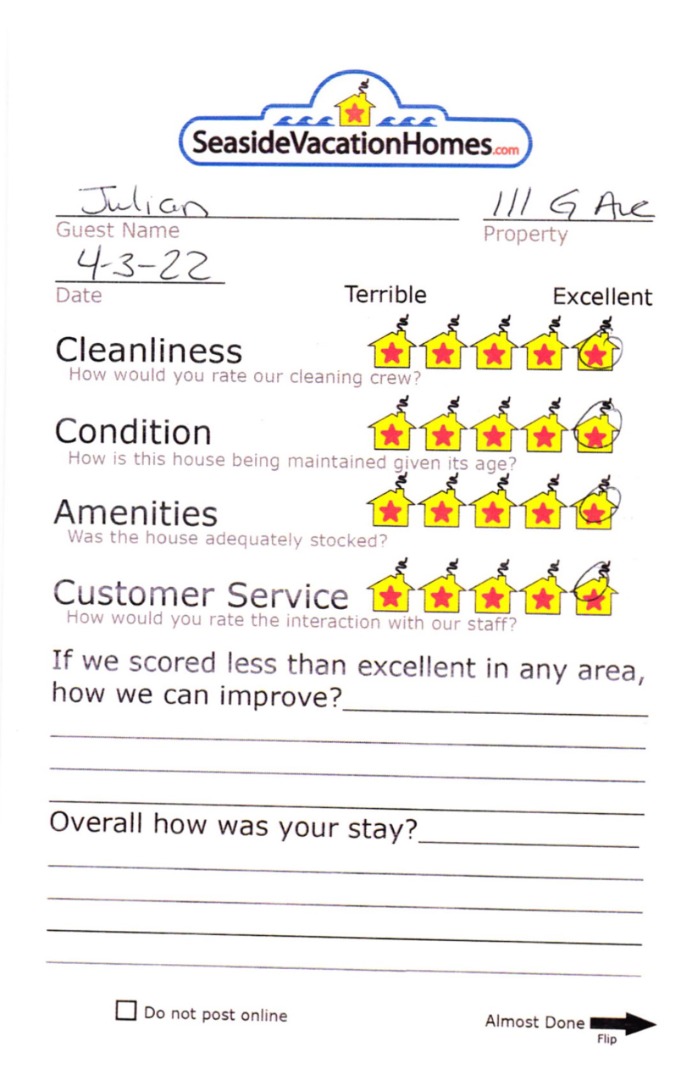 SeasideVacationHomes.com
Julian 111 G Ave
Guest Name Property
4-3-22
Date Terrible Excellent
Cleanliness
How would you rate our cleaning crew?
Condition
How is this house being maintained given its age?
Amenities
Was the house adequately stocked?
Customer Service
How would you rate the interaction with our staff?
If we scored less than excellent in any area,
how we can improve?
Overall how was your stay?
Do not post online Almost Done
Flip